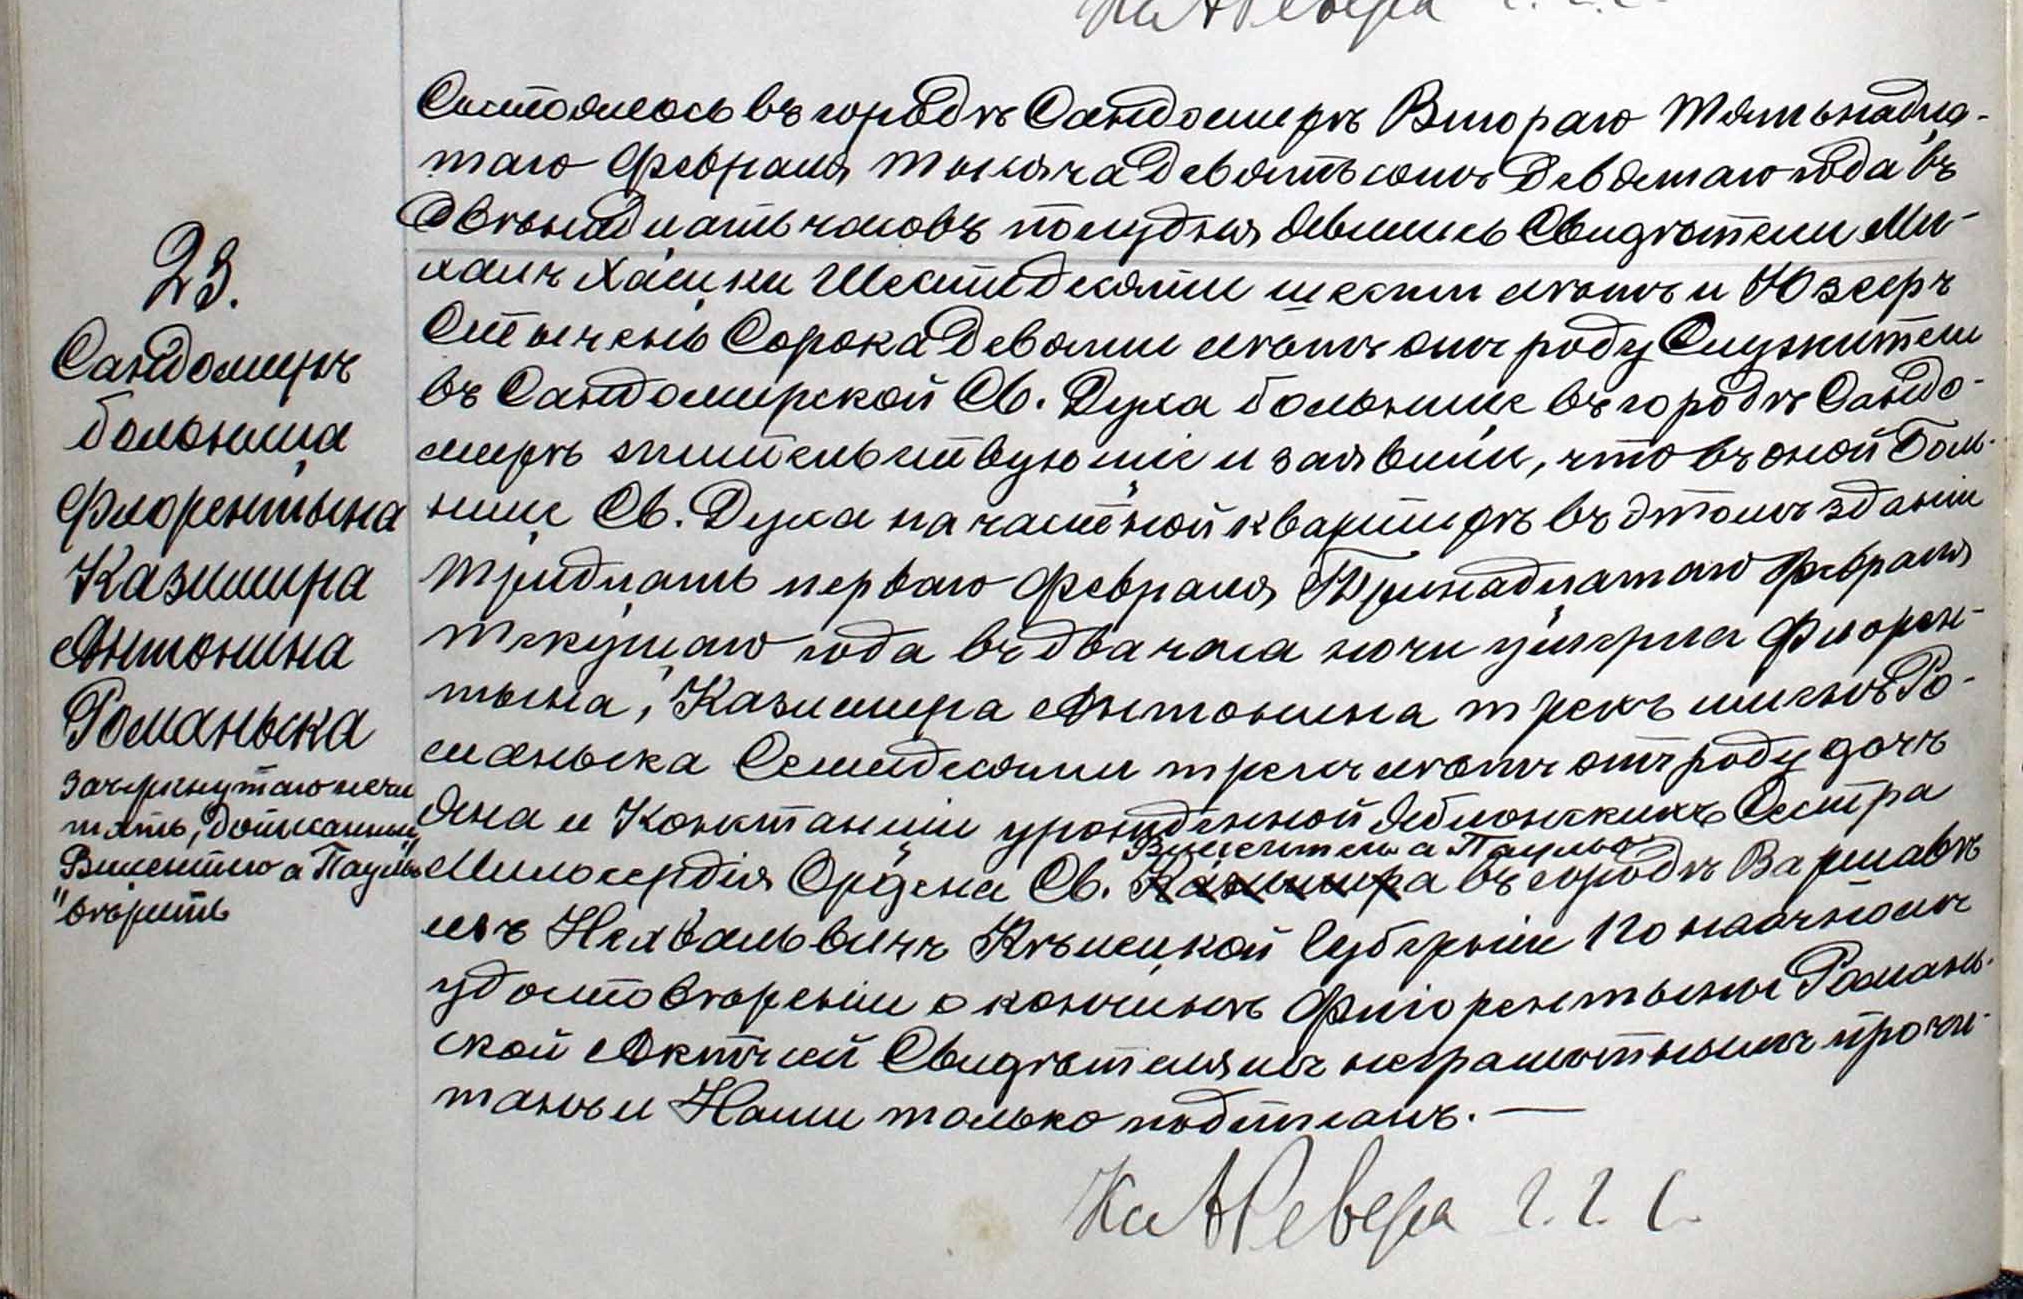 23.
Сандомиръ
больница
Флорентына
Казимира
Антонина
Романьска
зачеркнутаго нечи
тать, дописанный
Винентего а Пауль
"вѣрить
Состоялось въ городѣ Сандомирѣ Втораго Пятьнадца-
таго Февраля тысяча Девятьсотъ Девятаго года въ
Двѣнадцать часовъ полудня явились Свидѣтели Ми-
халъ Шестидесяти шести лѣтъ и Юзефъ
Стычень Сорока Девяти лѣтъ отъ роду Служители
въ Сандомирской Св. Духа больницѣ въ городѣ Сандо-
мирѣ жительствующіе и заявили, что въ оной Боль-
ницѣ Св. Духа на частной квартирѣ въ этомъ зданіи
Тридцать перваго Февраля Тринадцатаго Февраля
текущаго года въ два часа ночи умерла Флорен-
тына, Казимира Антонина трехъ именъ Ро-
маньска Семидесяти трехъ лѣтъ отъ роду дочь
Яна и Констанціи урожденной Яблонскихъ Сестра
Винентего а Паульо
Милосердія Ордена Св. Казимира въ городѣ Варшавѣ
изъ Кѣлецкой Губерніи По наочномъ
удостовѣреніи о кончинѣ Флорентыны Романь-
ской Актъ сей Свидѣтелямъ неграмотнымъ прочи-
танъ и Нами только подписанъ.—